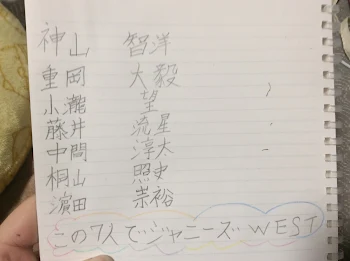 神山 智洋
重岡 大毅
小瀧 望
藤井 流星
中間 淳太
桐山 照史
濵田 崇裕
この7人でジャニーズWEST